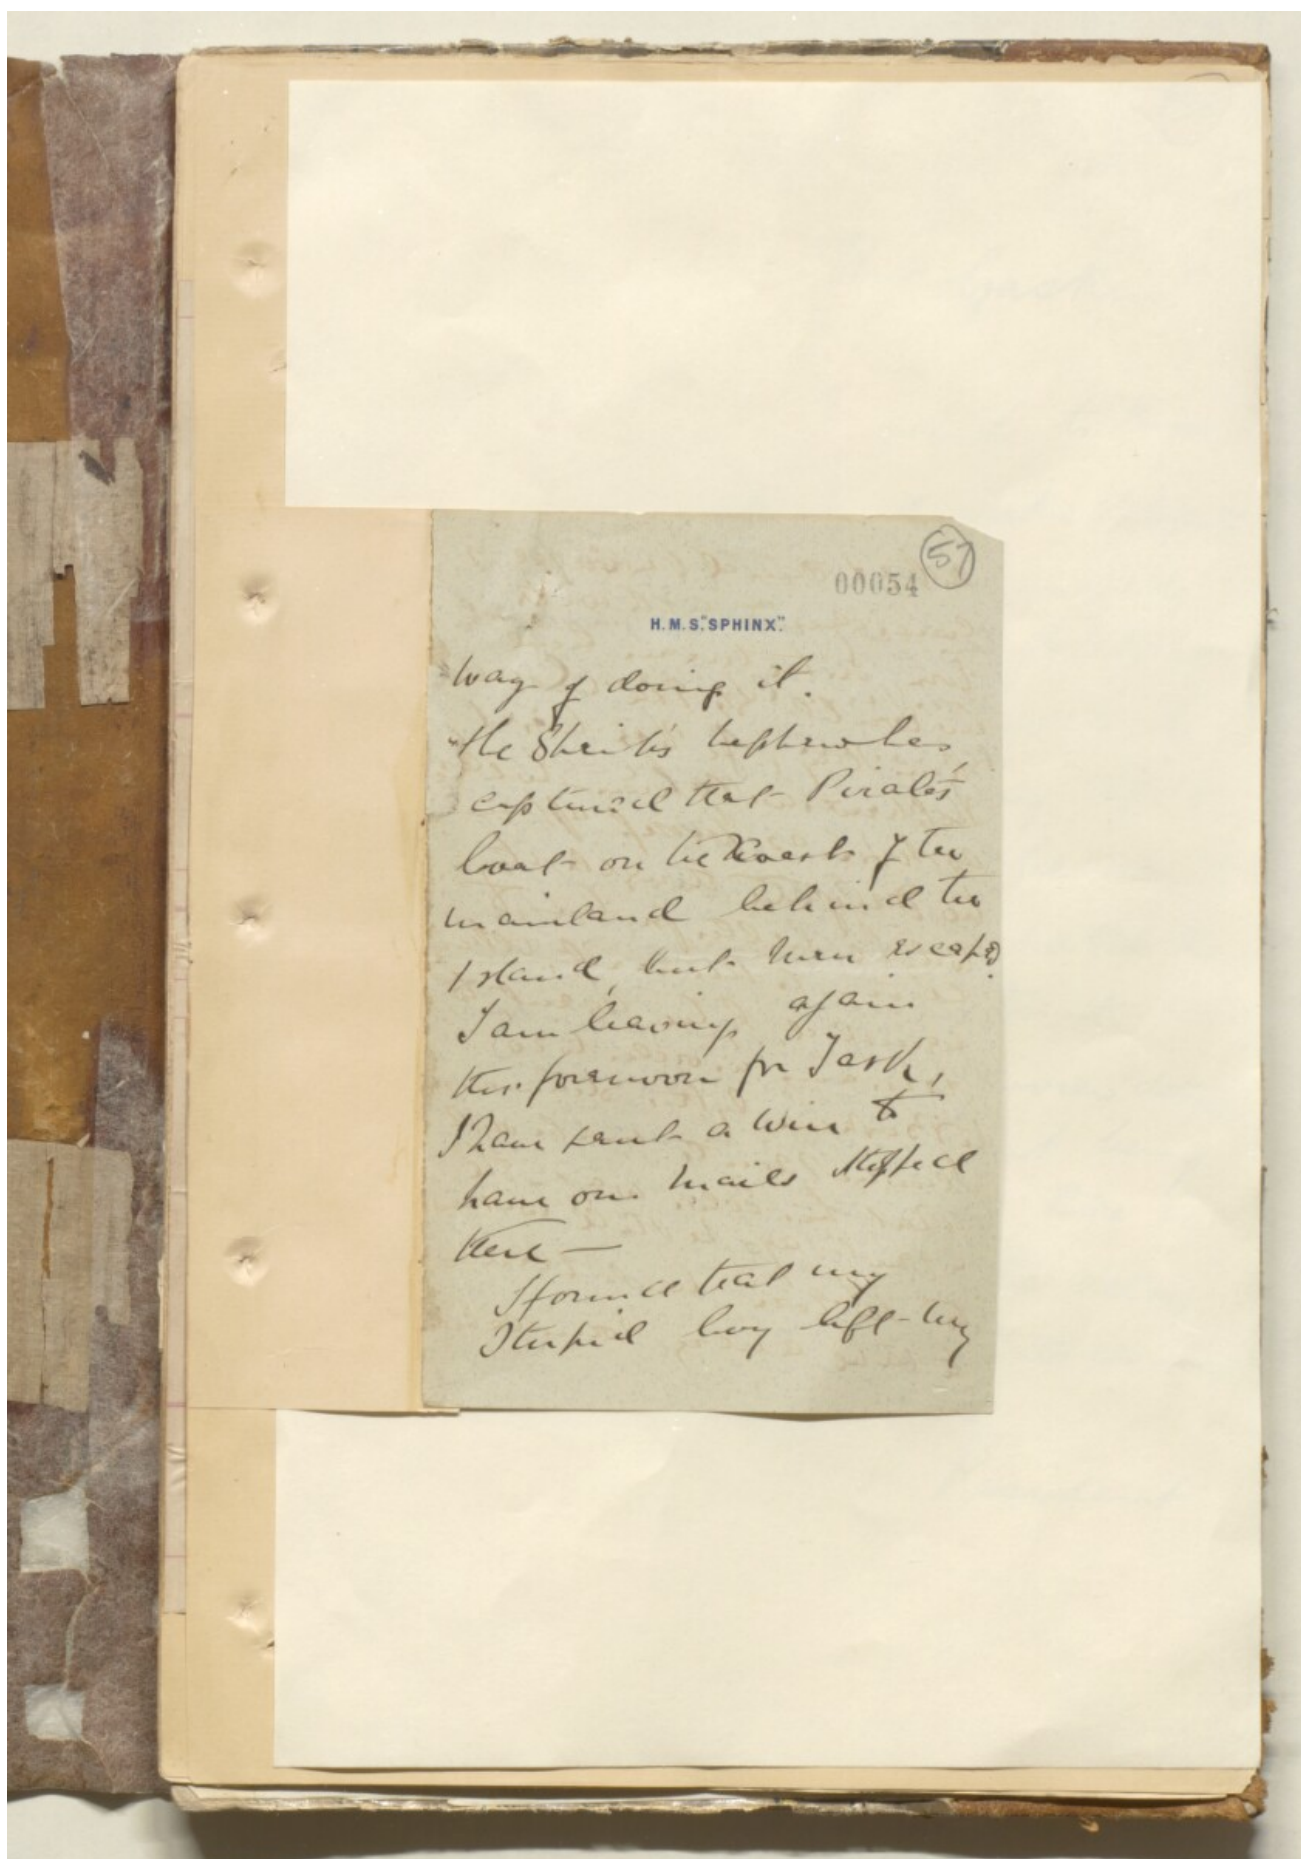 57
00054
H.M.S. "SPHINX".
way of doing it.
The Sheikh's nephew has
captured that Pirate's
boat on the Coast of the
mainland behind the
Island, but men escaped.
I am leaving again
this forenoon for Jask,
I have sent a wire to
have our mails stopped
there —
I found that my
Stupid boy left my